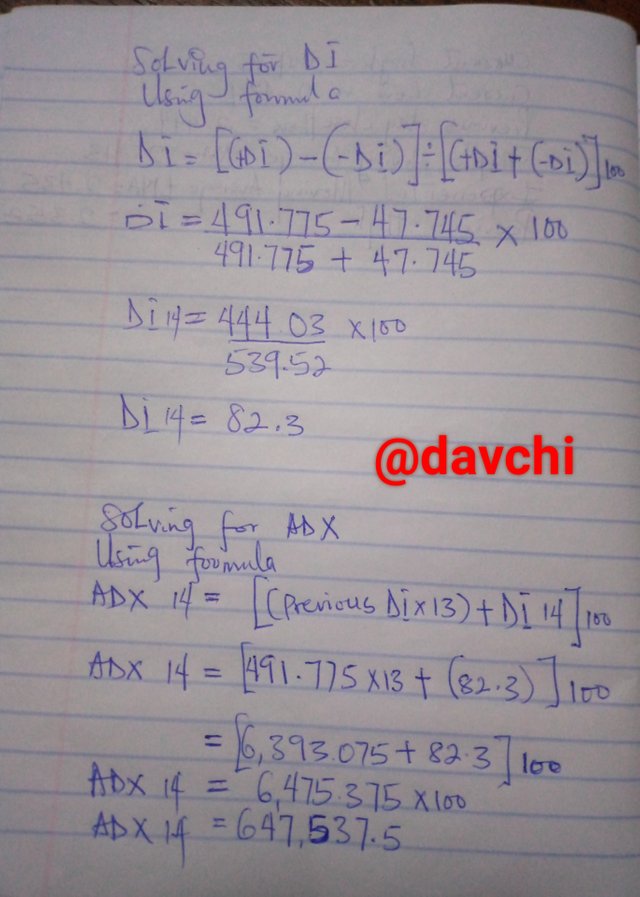 Solving for DI
Using formula
Di = [(+Di) - (-Di)] ÷ [(+Di + (-Di)] 100
DI = 491.775 - 47.745 x 100
491.775 + 47.745
Di 14 = 444.03 x 100
539.52
Di 14 = 82.3
@davchi
Solving for ADX
Using foomula
ADX 14 = [(previous Di x 13) + DI 14] 100
ADX 14 = [491.775 x 13 + (82.3)] 100
= [6,393.075 + 82.3] 100
ADX 14 = 6,475.375 x 100
ADX 14 = 647,537.5